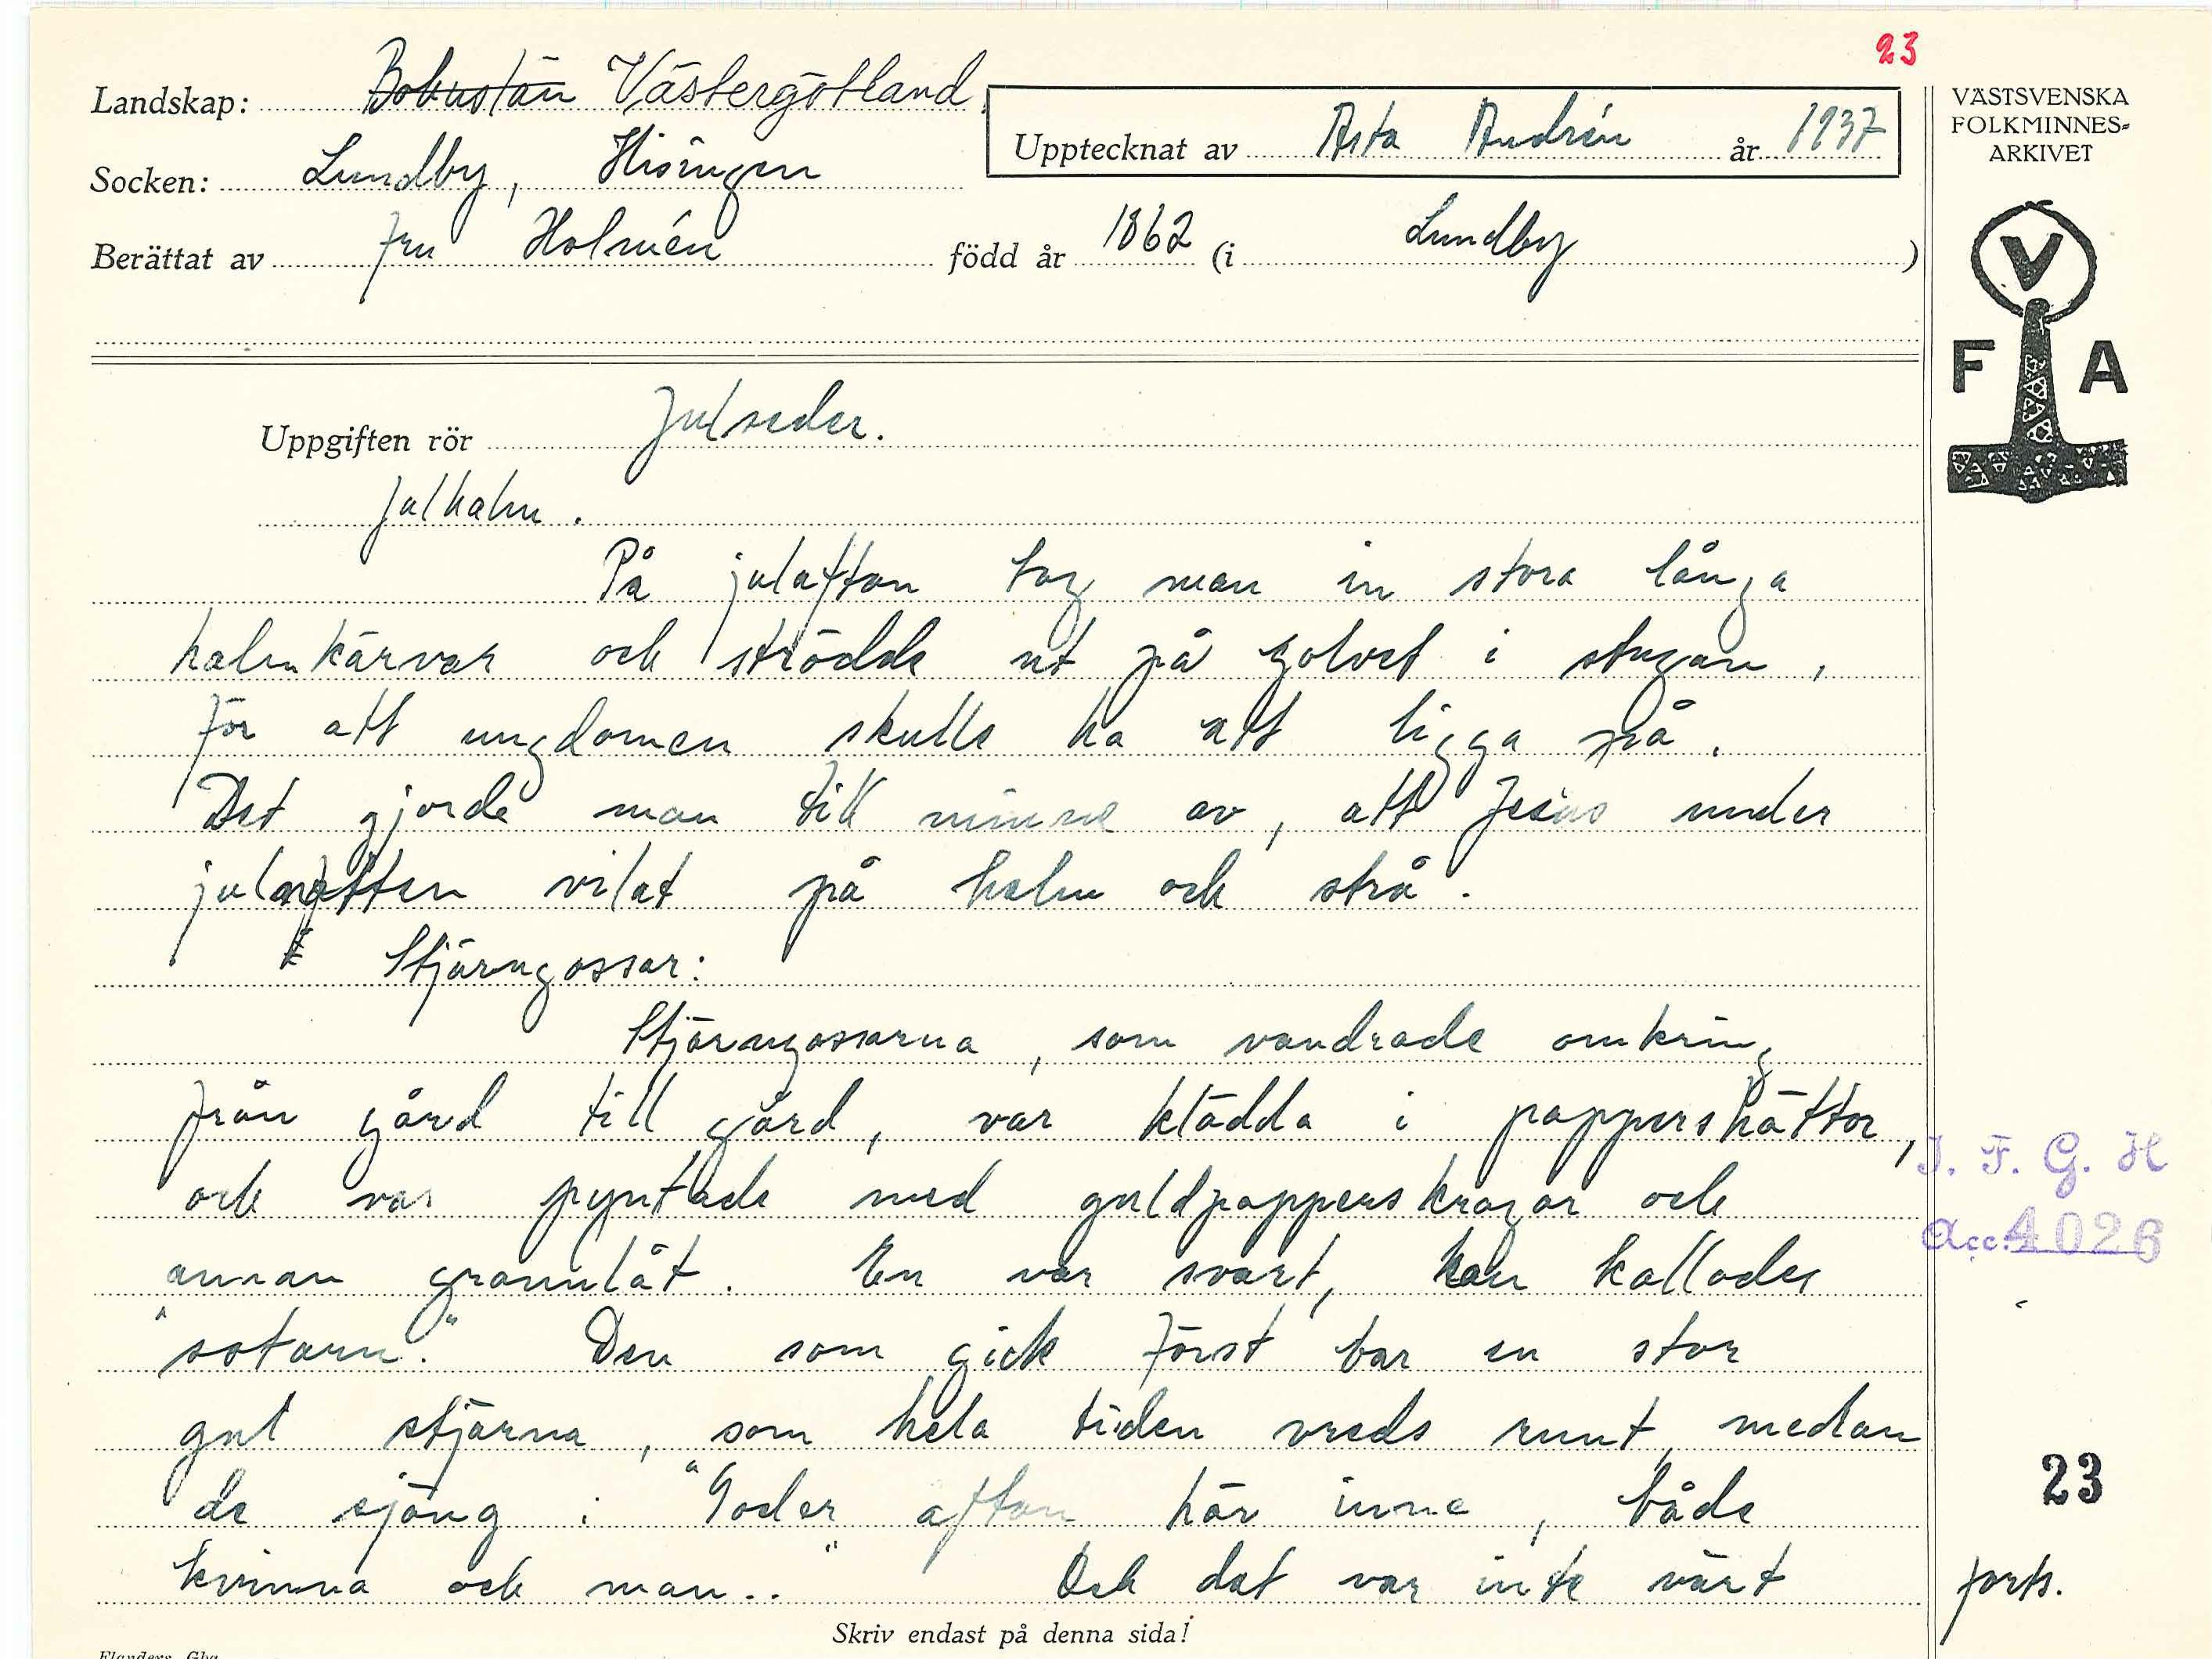 23
Landskap: Bohuslän Västergötland
Socken: Lundby, Hisingen
Upptecknat av Asta Andrén år 1937
Berättat av fru Holmén född år 1862 (i Lundby)
VÄSTSVENSKA
FOLKMINNES-
ARKIVET
V
F A
Uppgiften rör Julseder.
Julhalm.
På julafton tog man in stora långa
halmkärvar och strödde ut på golvet i stugan,
för att ungdomen skulle ha att ligga på.
Det gjorde man till minne av, att Jesus under
julnatten vilat på halm och strå.
Stjärngossar:
Stjärngossarna, som vandrade omkring
från gård till gård, var klädda i pappershättor,
och var pyntade med guldpapperskragar och
annan grannlåt. En var svart, han kallades
"sotarn." Den som gick först bar en stor
gul stjärna, som hela tiden vreds runt, medan
de sjöng: "Goder afton här inne, både
kvinna och man.." Och det var inte värt
J. F. G. H
Acc: 4026
23
forts.
Skriv endast på denna sida!
Flanders Gbg